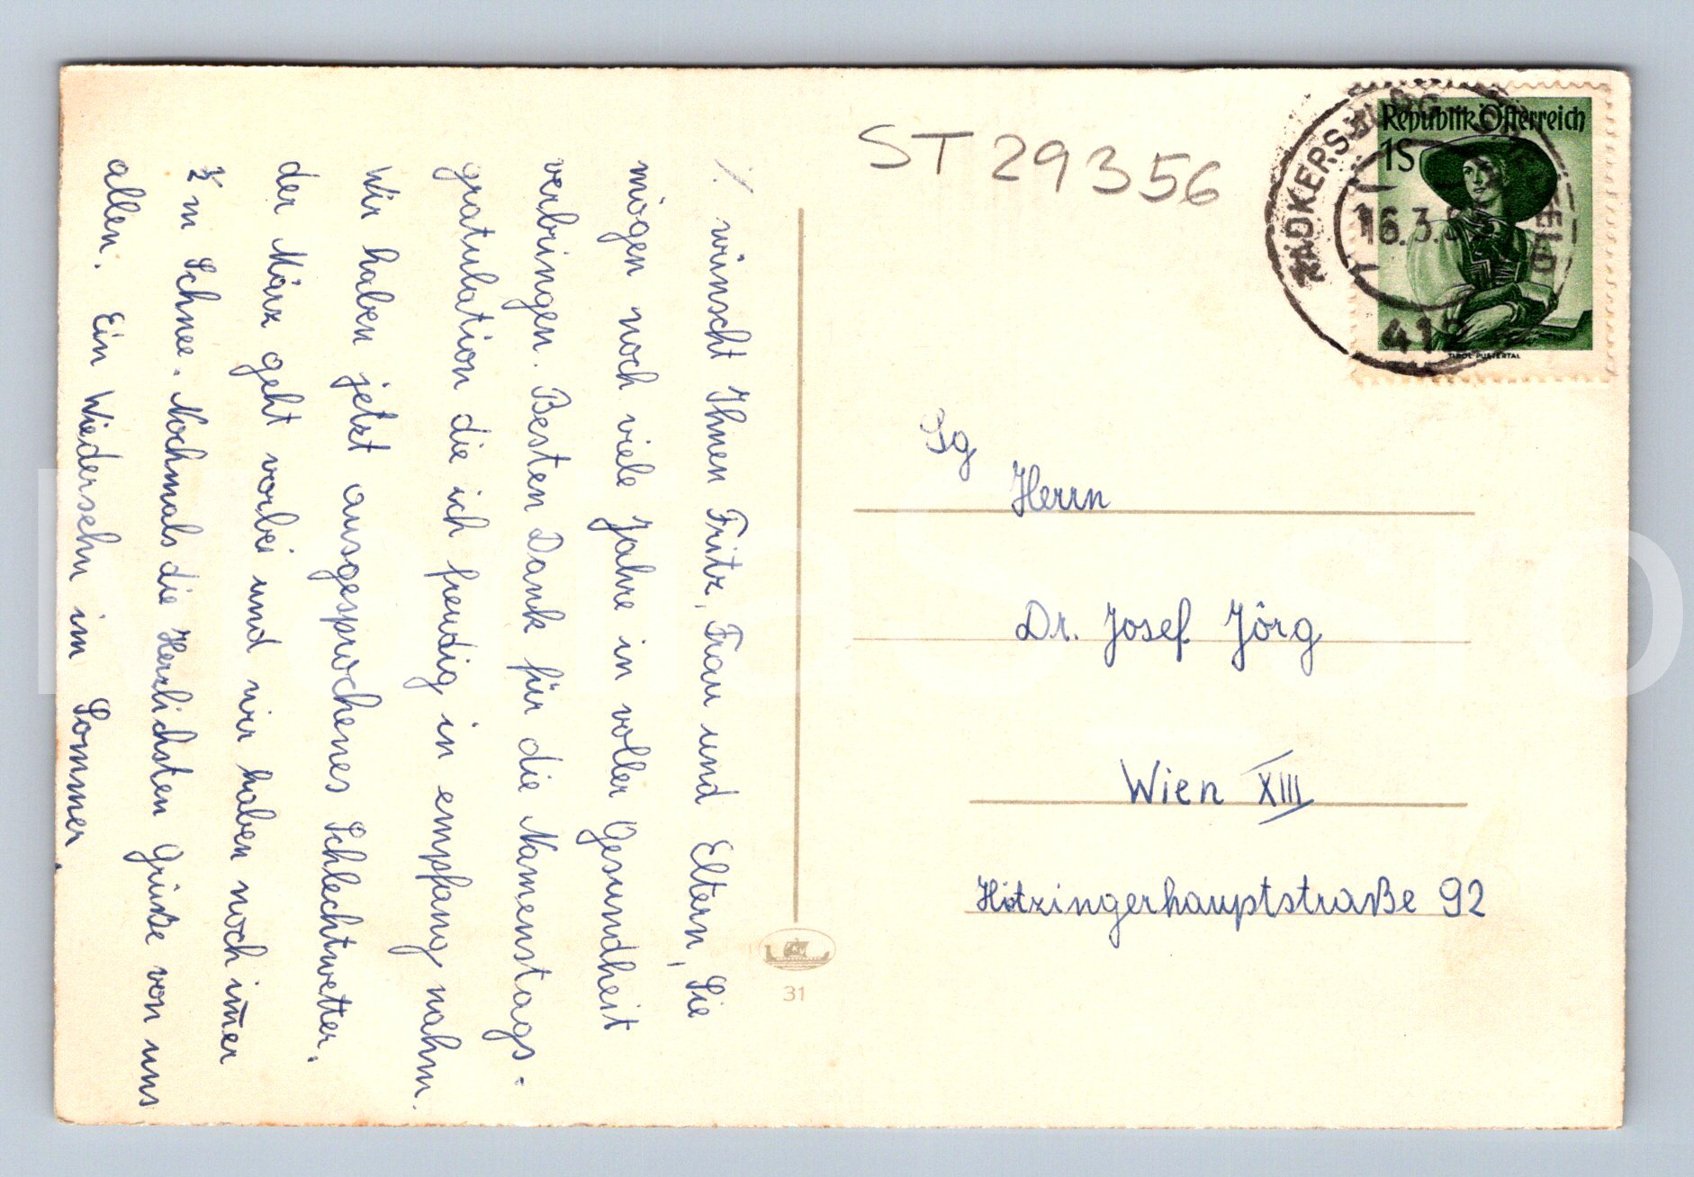 ST 29356
Republik Österreich
1S
TIROL PUSTERTAL
RADKERSBURG
16.3.5
412
./. wünscht Ihnen Fritz, Frau und Eltern, Sie
mögen noch viele Jahre in voller Gesundheit
verbringen. Besten Dank für die Namenstags-
gratulation die ich freudig in empfang nahm.
Wir haben jetzt ausgesprochenes Schlechtwetter.
der März geht vorbei und wir haben noch im̄er
½ m Schnee. Nochmals die Herzlichsten Grüße von uns
allen. Ein Wiedersehn im Sommer.
Sg
Herrn
Dr. Josef Jörg
Wien XIII
Hötzingerhauptstraße 92
31